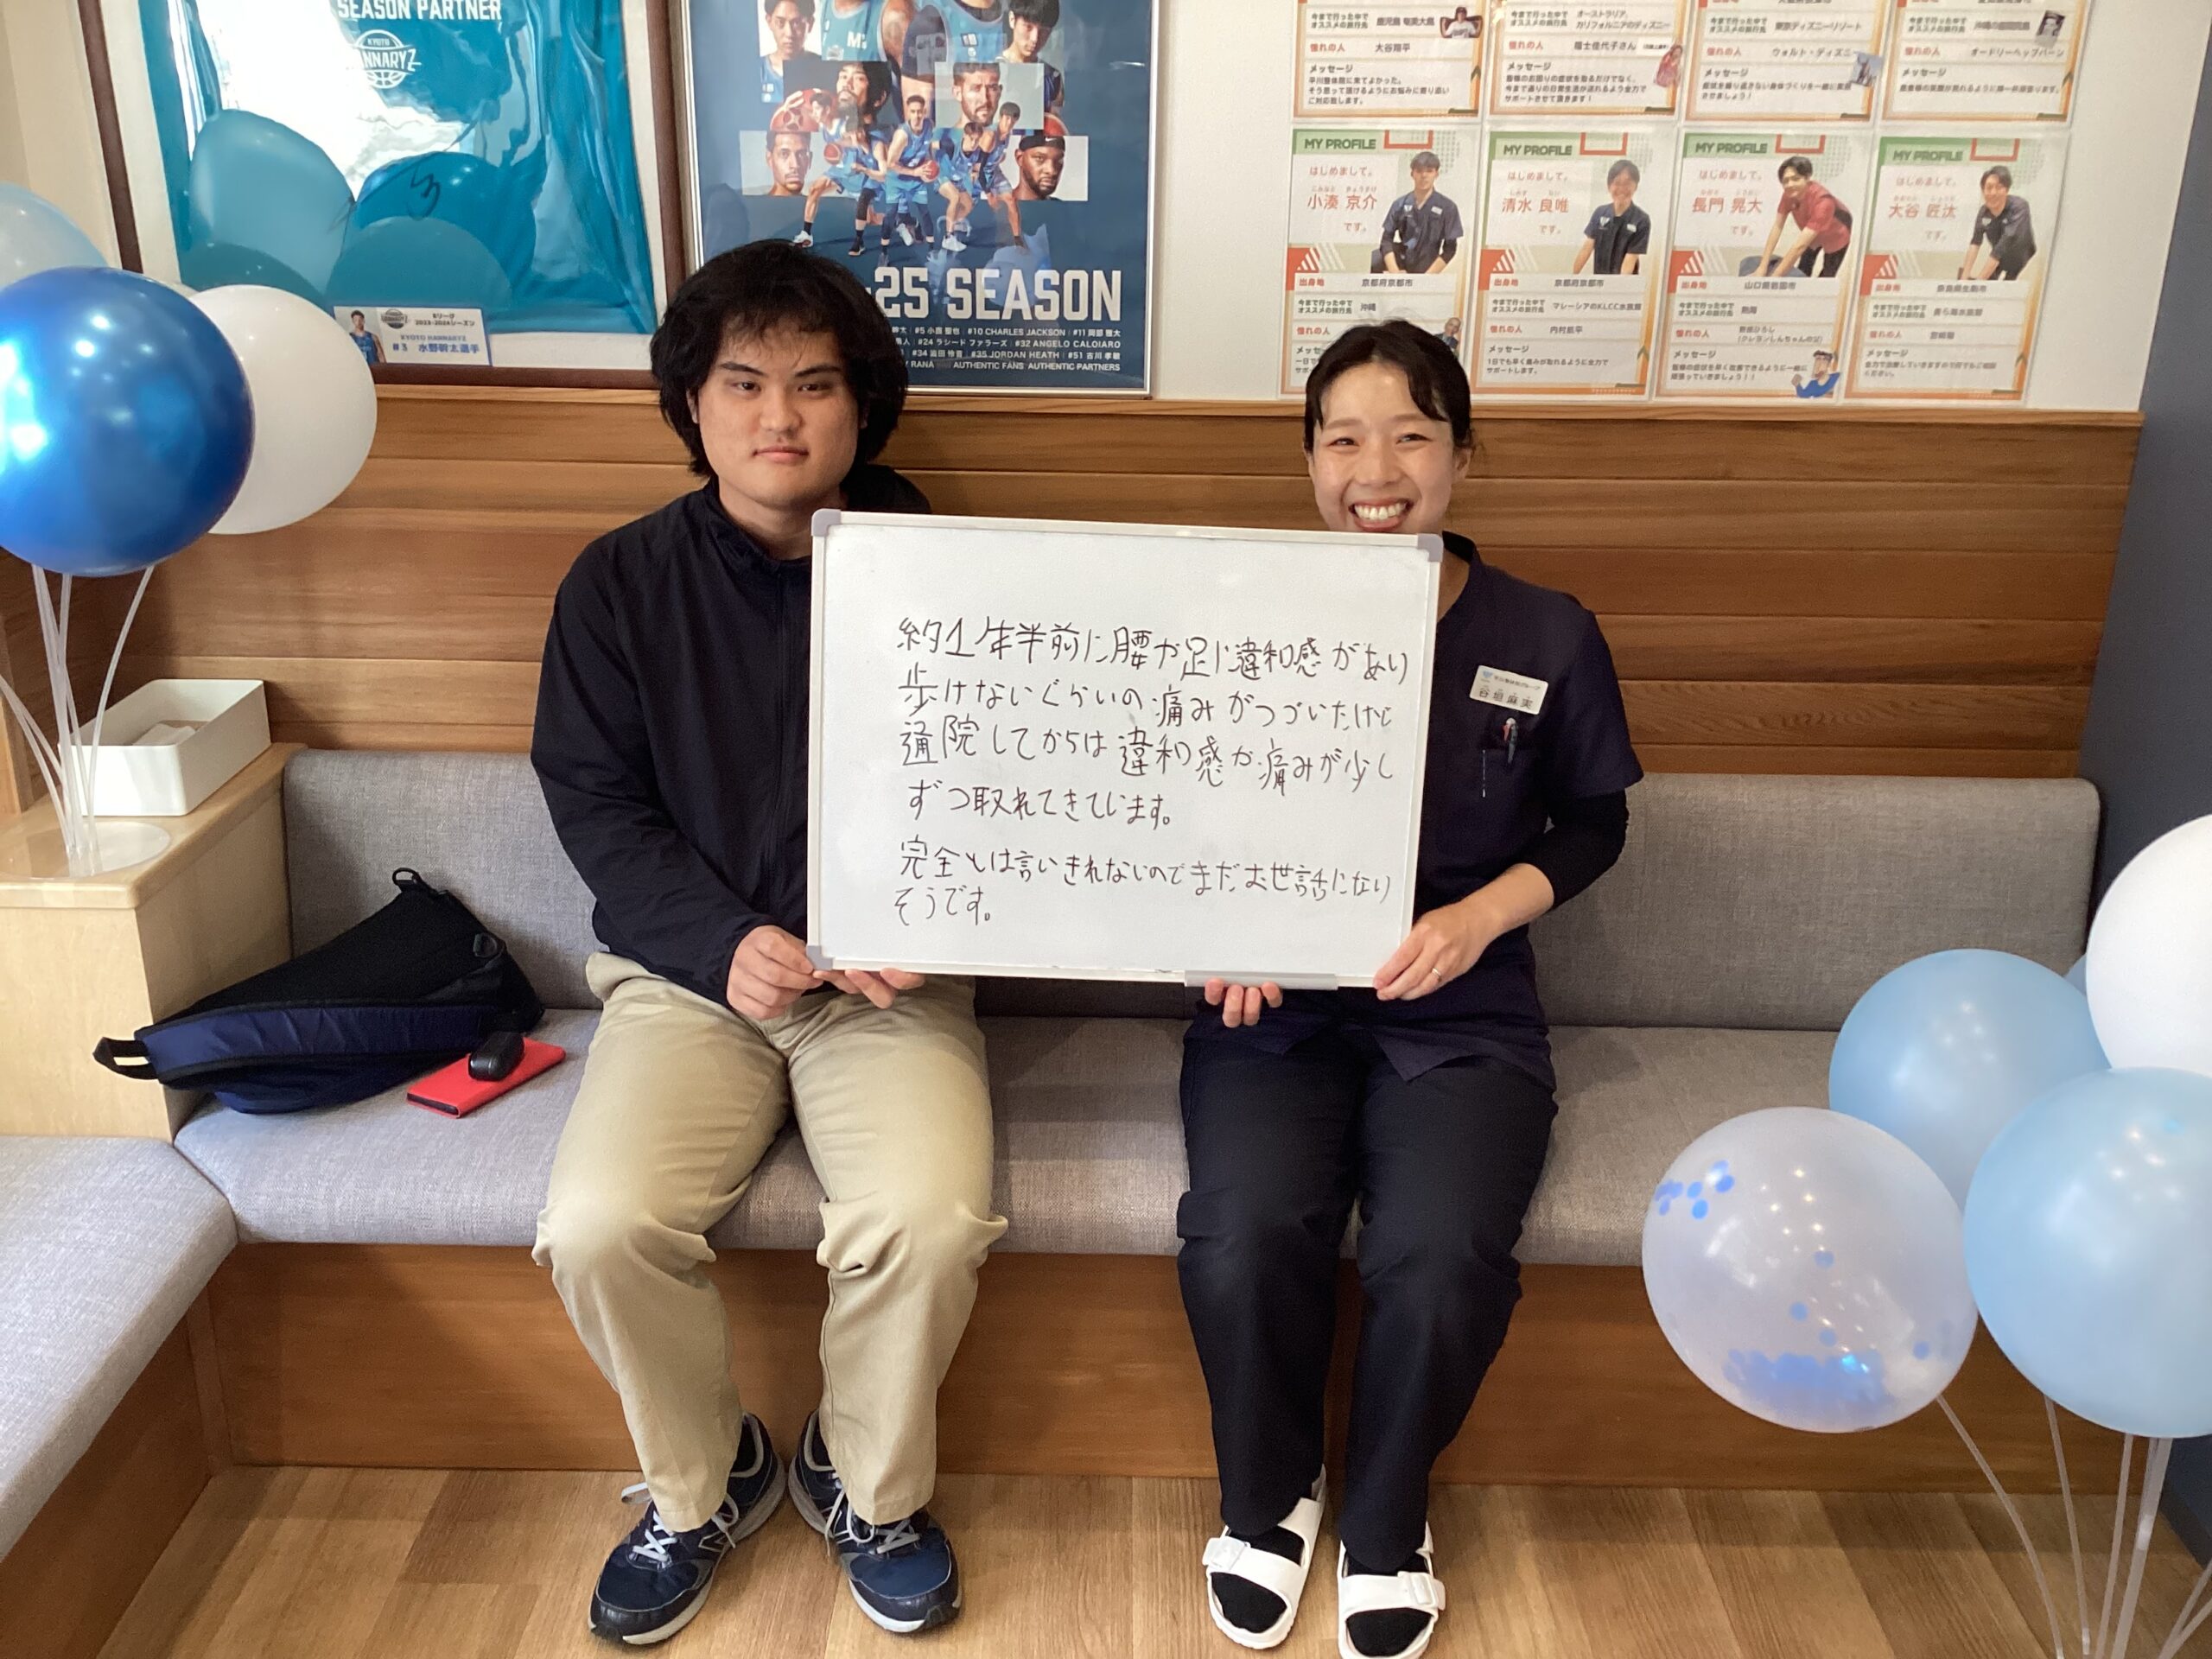 SEASON PARTNER
KYOTO
HANNARYZ
Bリーグ
2023-2024シーズン
KYOTO HANNARYZ
#3 水野幹太選手
-25 SEASON
#5 小西聖也 #10 CHARLES JACKSON #11 岡部雅大
#24 ラシード ファラーズ #32 ANGELO CALOIARO
#35 JORDAN HEATH #51 古川孝敏
RANA AUTHENTIC FANS AUTHENTIC PARTNERS
今まで行った中で
オススメの旅行先
鹿児島 奄美大島
憧れの人
大谷翔平
メッセージ
平川整体院に来てよかった。
そう思って頂けるようにお悩みに寄り添い
ご対応致します。
今まで行った中で
オススメの旅行先
オーストラリア、
カリフォルニアのディズニー
憧れの人
メッセージ
今まで通りの日常生活が送れるよう全力で
サポートさせて頂きます！
今まで行った中で
オススメの旅行先
東京ディズニーリゾート
憧れの人
ウォルト・ディズニー
メッセージ
今まで行った中で
オススメの旅行先
憧れの人
オードリーヘップバーン
メッセージ
MY PROFILE
はじめまして。
小湊 京介
です。
出身地
京都府京都市
今まで行った中で
オススメの旅行先
沖縄
憧れの人
MY PROFILE
はじめまして。
清水 良唯
です。
出身地
京都府京都市
今まで行った中で
オススメの旅行先
マレーシアのKLCC水族館
憧れの人
内村航平
メッセージ
1日でも早く痛みが取れるように全力で
サポートします。
MY PROFILE
はじめまして。
長門 晃大
です。
出身地
山口県岩国市
今まで行った中で
オススメの旅行先
熱海
憧れの人
野原ひろし
(クレヨンしんちゃんの父)
メッセージ
皆様の症状を早く改善できるように一緒に
頑張っていきましょう！！
MY PROFILE
はじめまして。
大谷 匠汰
です。
出身地
奈良県生駒市
今まで行った中で
オススメの旅行先
美ら海水族館
憧れの人
メッセージ
約1年半前に腰か足に違和感があり
歩けないぐらいの痛みがつづいたけど
通院してからは違和感か痛みが少し
ずつ取れてきています。
完全とは言いきれないのでまだお世話になり
そうです。
谷垣麻実